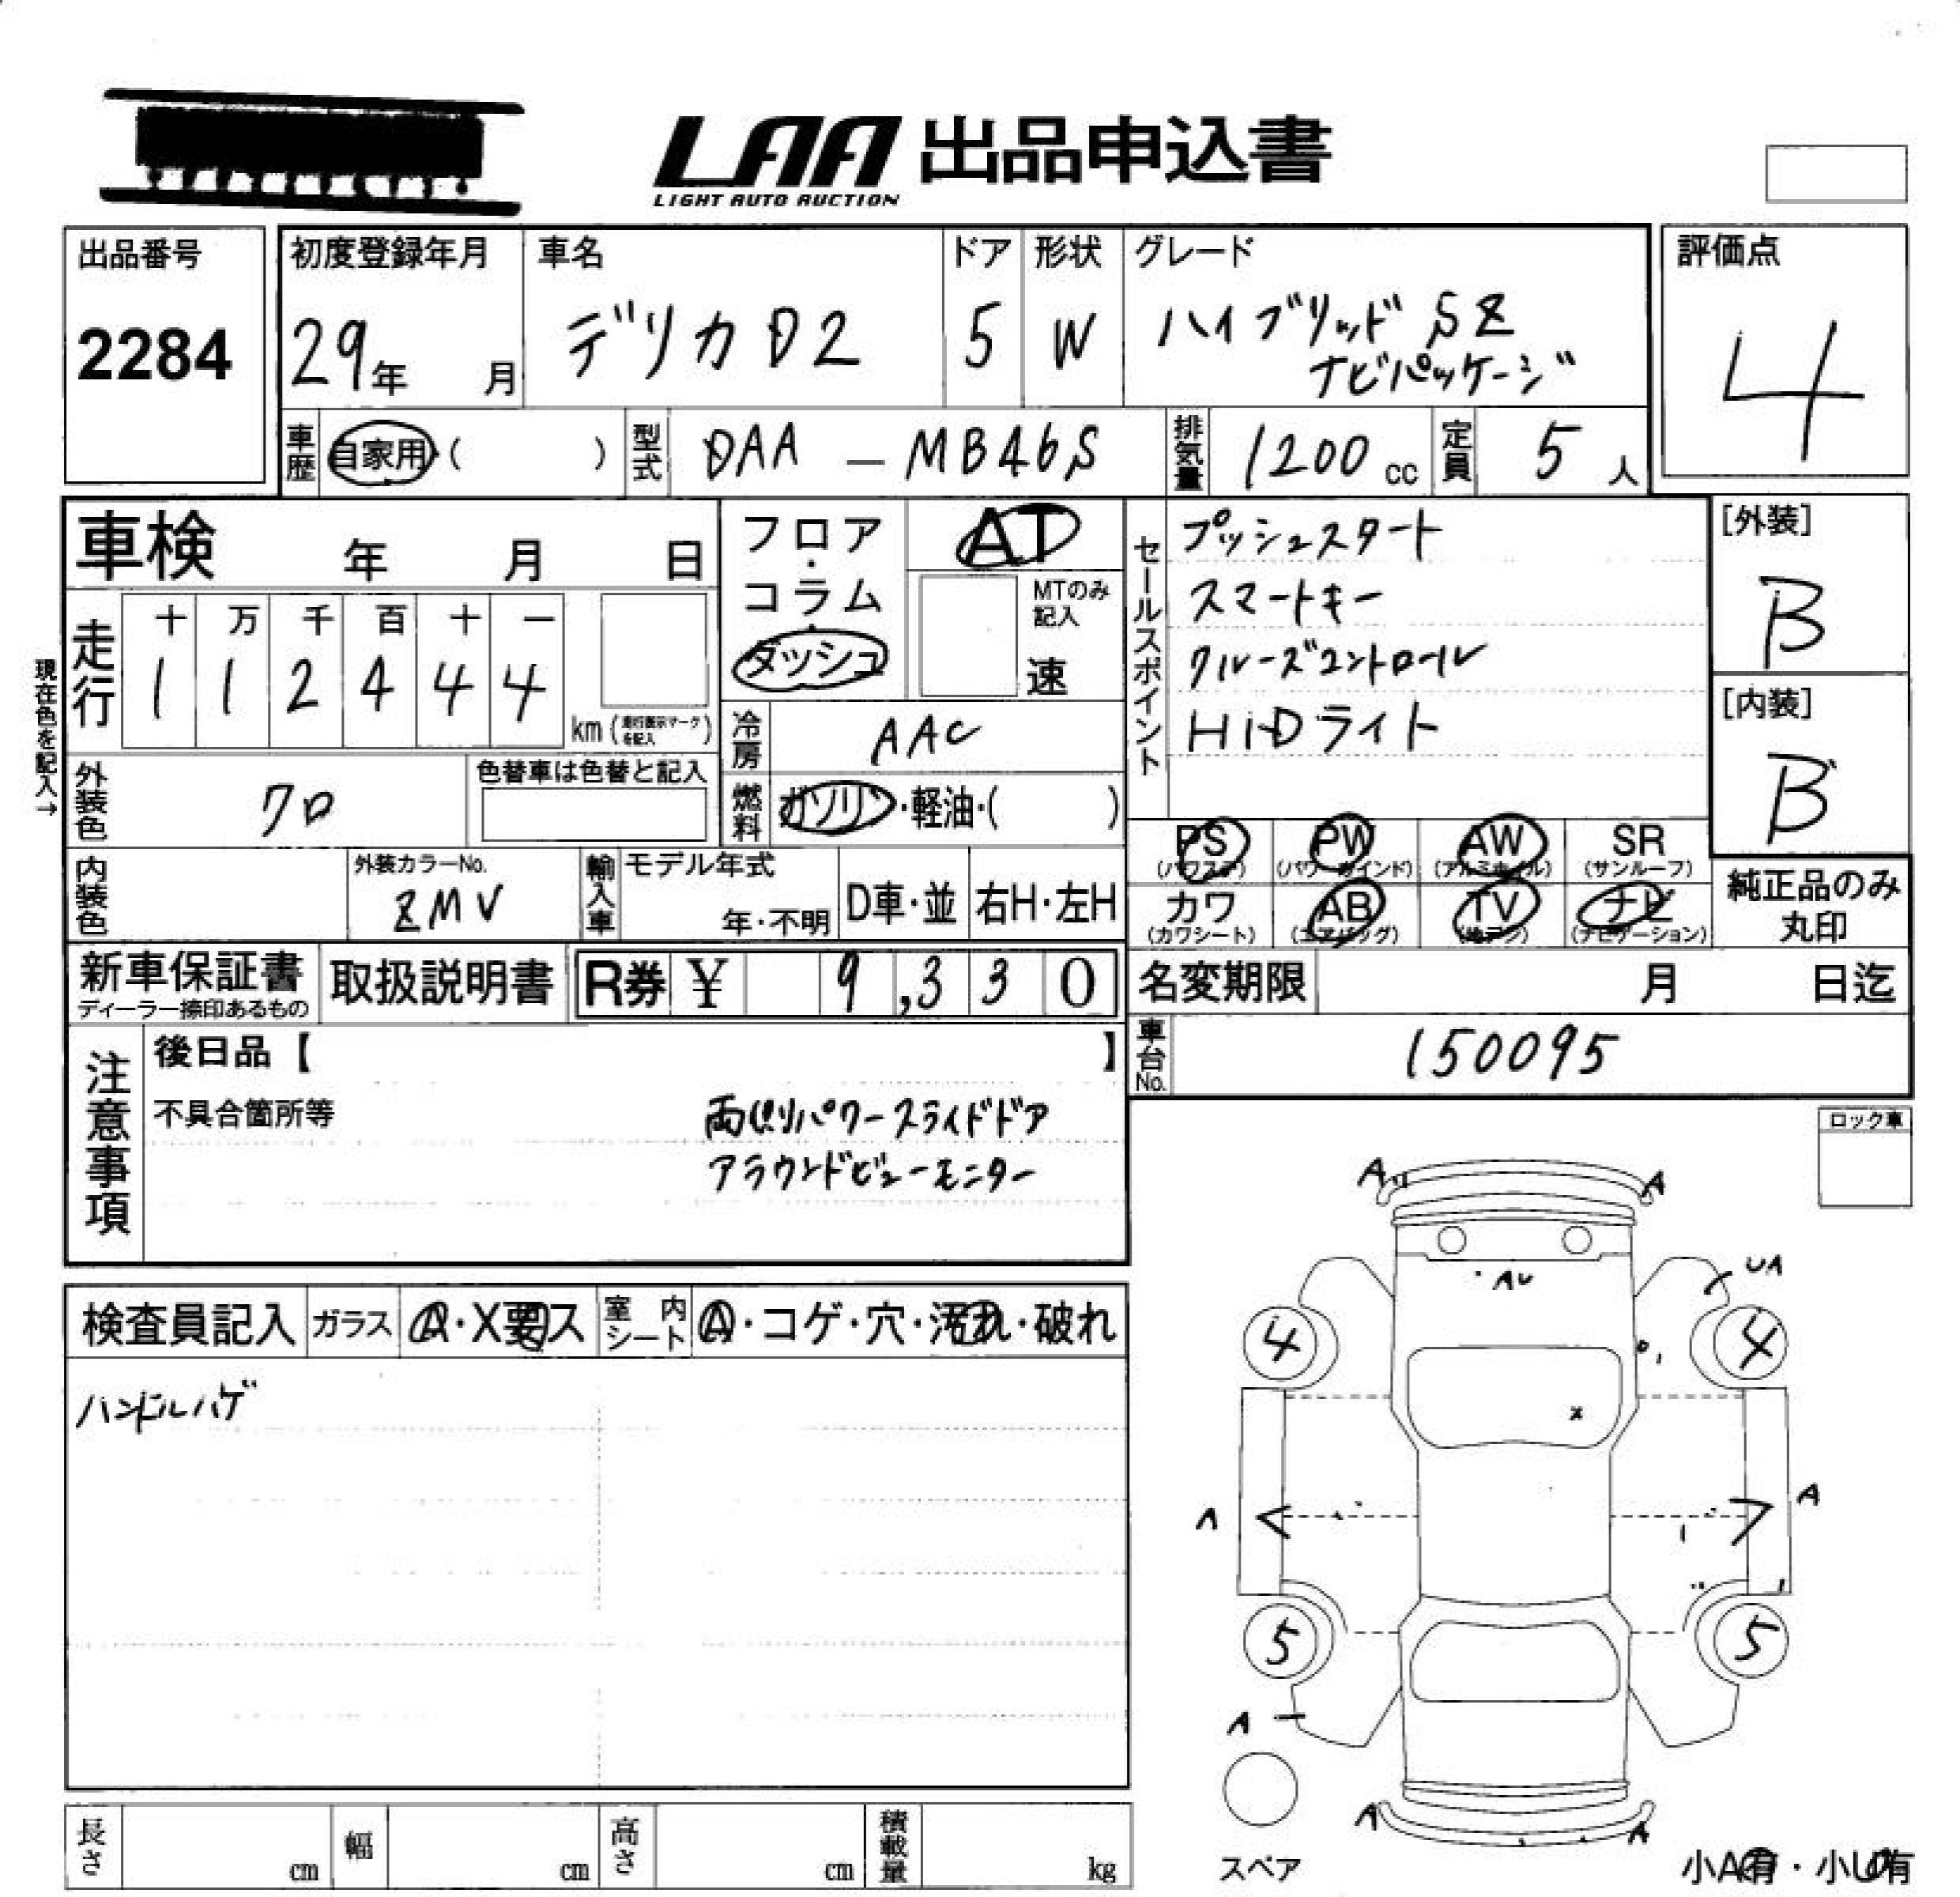 LAA 出品申込書
LIGHT AUTO AUCTION
出品番号
2284
初度登録年月
29年 月
車名
デリカD2
ドア
5
形状
W
グレード
ハイブリッド SZ
ナビパッケージ
評価点
4
車歴
自家用・( )
型式
DAA — MB46S
排気量
1200 cc
定員
5 人
車検 年 月 日
現在色を記入→
走行
十 万 千 百 十 一
1 1 2 4 4 4
km (走行表示マークを記入)
フロア・
コラム・
ダッシュ
AT
MTのみ
記入
速
冷房
AAC
燃料
ガソリン・軽油・( )
セールスポイント
プッシュスタート
スマートキー
クルーズコントロール
HiDライト
[外装]
B
[内装]
B
外装色
クロ
色替車は色替と記入
内装色
外装カラーNo.
ZMV
輸入車
モデル年式
年・不明
D車・並
右H・左H
PS
(パワステ)
PW
(パワーウインド)
AW
(アルミホイル)
SR
(サンルーフ)
カワ
(カワシート)
AB
(エアバッグ)
TV
(地デジ)
ナビ
(ナビゲーション)
純正品のみ
丸印
新車保証書
ディーラー捺印あるもの
取扱説明書
R券 ¥ 9,330
名変期限 月 日迄
車台No.
150095
注意事項
後日品【 】
不具合箇所等
両側パワースライドドア
アラウンドビューモニター
ロック車
検査員記入
ガラス
A・X要ス
室内シート
A・コゲ・穴・汚れ・破れ
ハンドルハゲ
A
A
AU
UA
4
4
X
A
A
5
5
A
A
A
スペア
小A有・小U有
長さ
cm
幅
cm
高さ
cm
積載量
kg